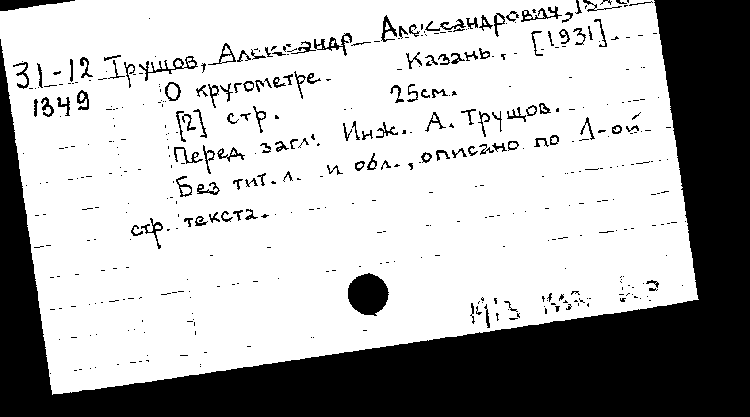 31-12 Трущов, Александр Александрович,
1349 О кругометре. Казань, [1931].
[2] стр. 25см.
Перед загл: Инж. А. Трущов.
Без тит. л. и обл., описано по 1-ой
стр. текста.